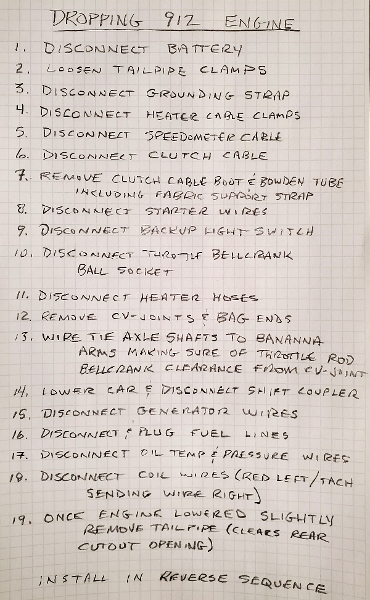 DROPPING 912 ENGINE
1. DISCONNECT BATTERY
2. LOOSEN TAILPIPE CLAMPS
3. DISCONNECT GROUNDING STRAP
4. DISCONNECT HEATER CABLE CLAMPS
5. DISCONNECT SPEEDOMETER CABLE
6. DISCONNECT CLUTCH CABLE
7. REMOVE CLUTCH CABLE BOOT & BOWDEN TUBE
INCLUDING FABRIC SUPPORT STRAP
8. DISCONNECT STARTER WIRES
9. DISCONNECT BACKUP LIGHT SWITCH
10. DISCONNECT THROTTLE BELLCRANK
BALL SOCKET
11. DISCONNECT HEATER HOSES
12. REMOVE CV-JOINTS & BAG ENDS
13. WIRE TIE AXLE SHAFTS TO BANANNA
ARMS MAKING SURE OF THROTTLE ROD
BELLCRANK CLEARANCE FROM CV-JOINT
14. LOWER CAR & DISCONNECT SHIFT COUPLER
15. DISCONNECT GENERATOR WIRES
16. DISCONNECT & PLUG FUEL LINES
17. DISCONNECT OIL TEMP & PRESSURE WIRES
18. DISCONNECT COIL WIRES (RED LEFT/TACH
SENDING WIRE RIGHT)
19. ONCE ENGINE LOWERED SLIGHTLY
REMOVE TAILPIPE (CLEARS REAR
CUTOUT OPENING)
INSTALL IN REVERSE SEQUENCE